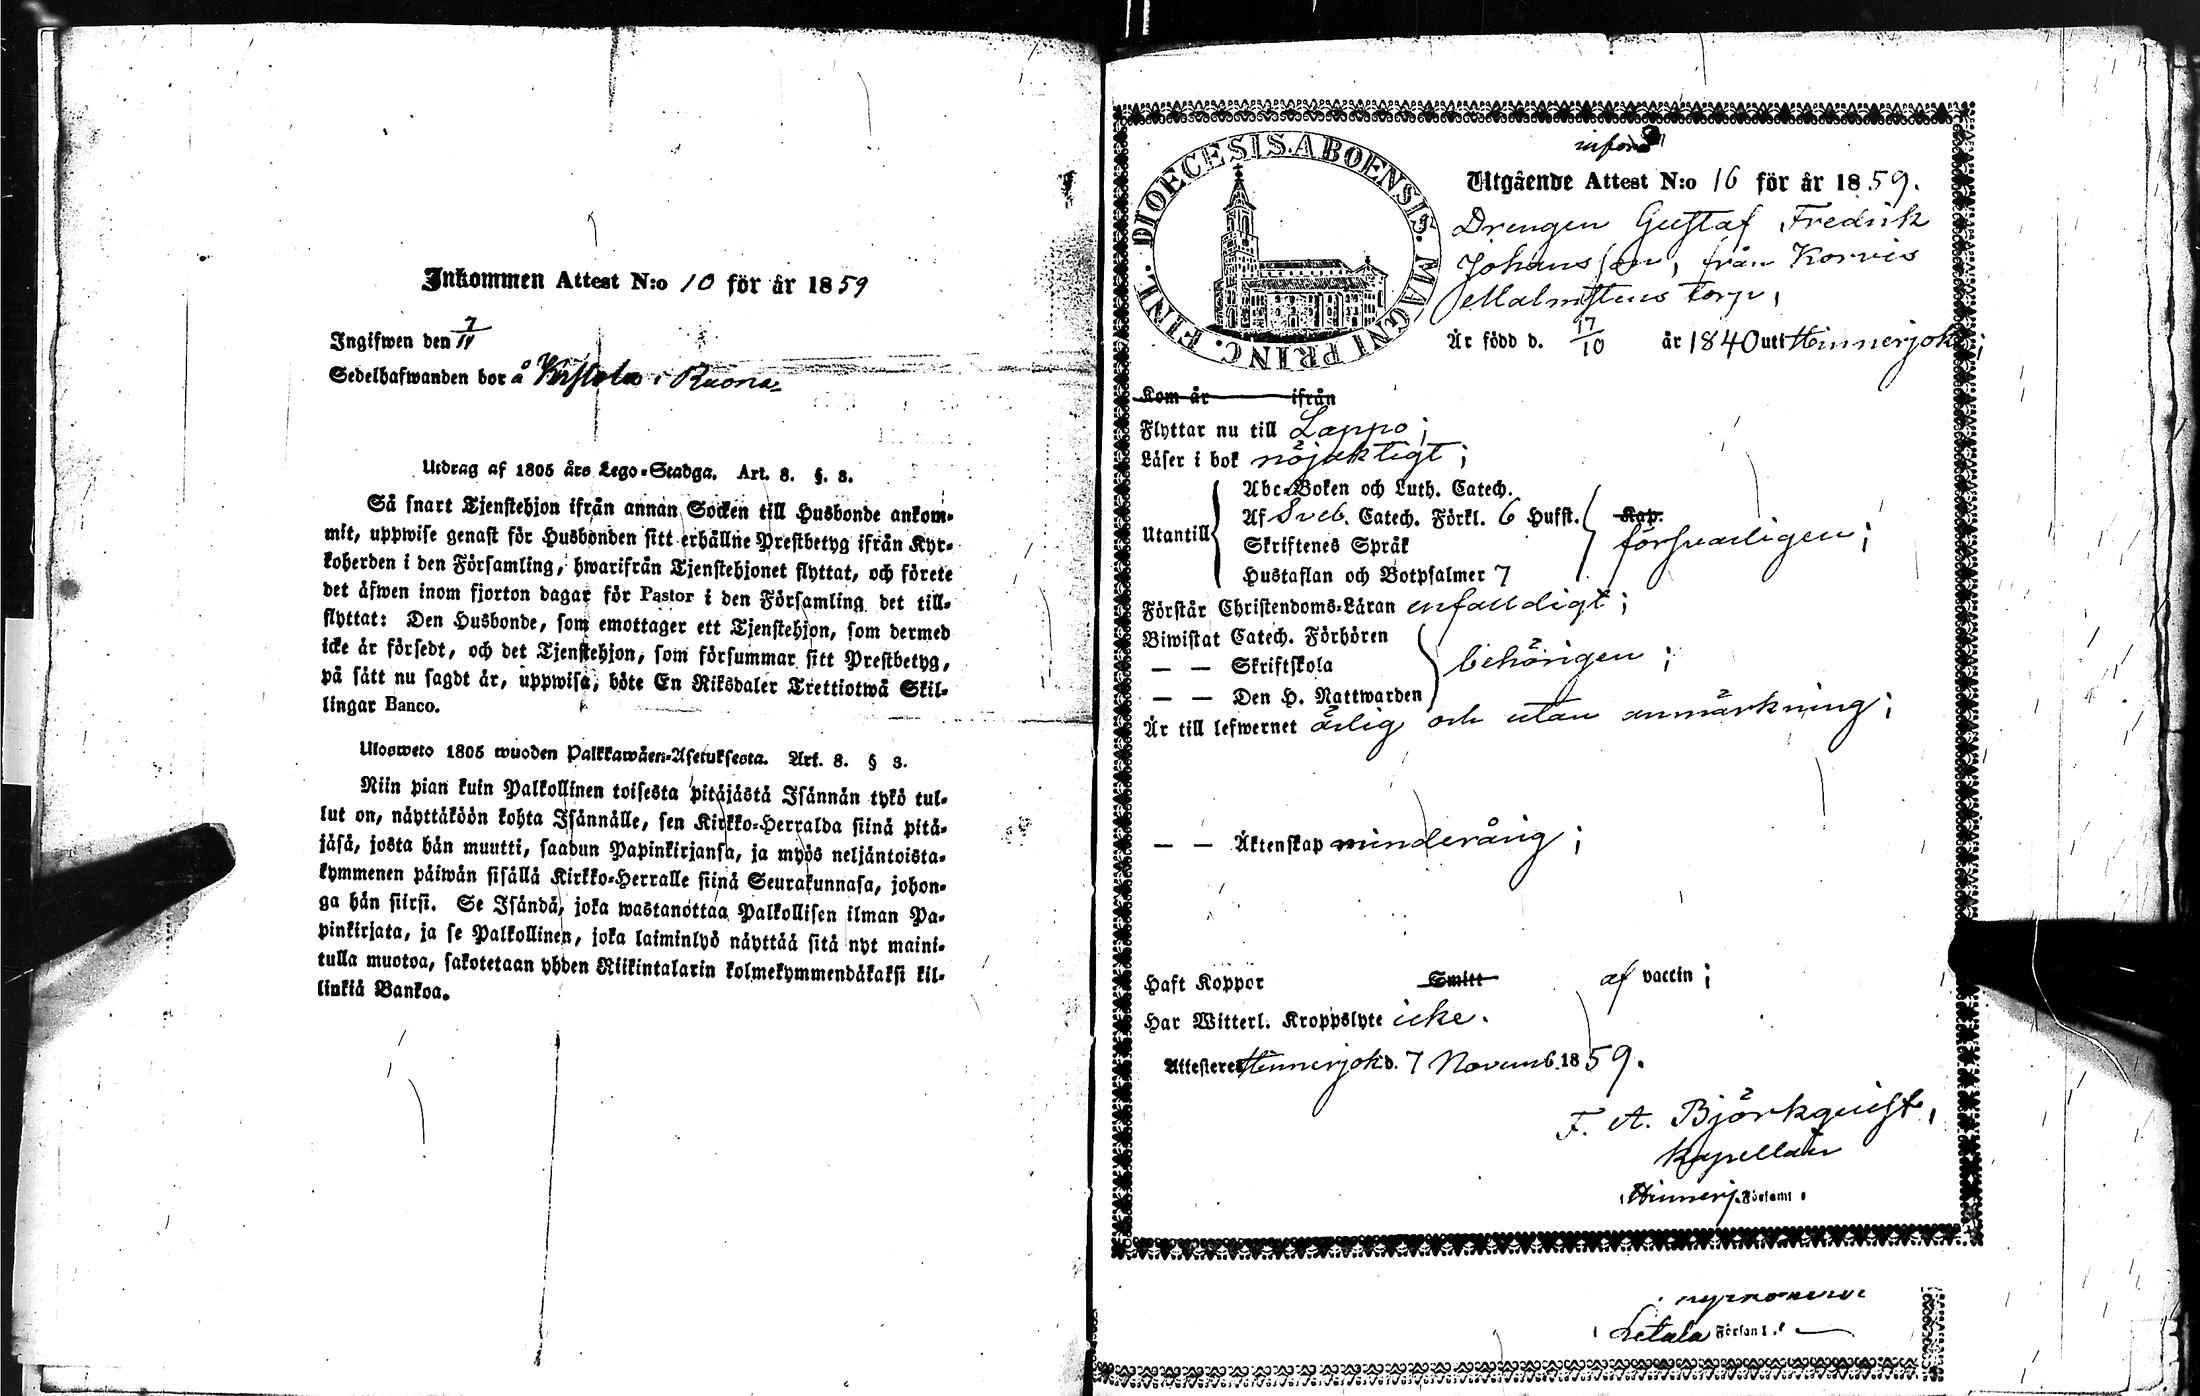 Inkommen Attest N:o 10 för år 1859
Ingifwen den 7/11
Sedelhafwanden bor å i Ruona
Utdrag af 1805 års Lego-Stadga. Art. 8. §. 3.
Så snart Tjenstehjon ifrån annan Socken till Husbonde ankom-
mit, uppwise genast för Husbonden sitt erhållne Prestbetyg ifrån Kyr-
koherden i den Församling, hwarifrån Tjenstehjonet flyttat, och förete
det äfwen inom fjorton dagar för Pastor i den Församling det till-
flyttat: Den Husbonde, som emottager ett Tjenstehjon, som dermed
icke är försedt, och det Tjenstehjon, som försummar sitt Prestbetyg,
på sätt nu sagdt är, uppwisa, böte En Riksdaler Trettiotwå Skil-
lingar Banco.
Ulosweto 1805 wuoden Palkkawäen-Asetuksesta. Art. 8. § 3.
Niin pian kuin Palkollinen toisesta pitäjästä Isännän tykö tul-
lut on, näyttäköön kohta Isännälle, sen Kirkko-Herralda siinä pitä-
jäsä, josta hän muutti, saadun Papinkirjansa, ja myös neljäntoista-
kymmenen päiwän sisällä Kirkko-Herralle siinä Seurakunnasa, johon-
ga hän siirsi. Se Isändä, joka wastanottaa Palkollisen ilman Pa-
pinkirjata, ja se Palkollinen, joka laiminlyö näyttää sitä nyt maini-
tulla muotoa, sakotetaan yhden Riikintalarin kolmekymmendäkaksi kil-
linkiä Bankoa.
DIOECESIS. ABOENSIS. MAGNI PRINC. FINL.
införd
Utgående Attest N:o 16 för år 1859.
Drengen Gustaf Fredrik
Johansson, från Korvis
Malmstens torp,
Är född d. 17/10 år 1840 utt Hinnerjoki;
Kom år ifrån
Flyttar nu till Lappo;
Läser i bok nöjaktigt;
Utantill
Abc-Boken och Luth. Catech.
Af Sveb. Catech. Förkl. 6 Hufst. Kap.
Skriftenes Språk
försvarligen;
Hustaflan och Botpsalmer 7
Förstår Christendoms-Läran enfaldigt;
Biwistat Catech. Förhören
— — Skriftskola
behörigen;
— — Den H. Nattwarden
Är till lefwernet ärlig och utan anmärkning;
— — Äktenskap minderårig;
Haft Koppor Smitt af vaccin;
Har Witterl. Kroppslyte icke.
Attesteres Hinnerjoki d. 7 Novemb. 1859.
F. A. Björkquist,
Kapellan
i Hinnerj. Församl.
Letala Församl.